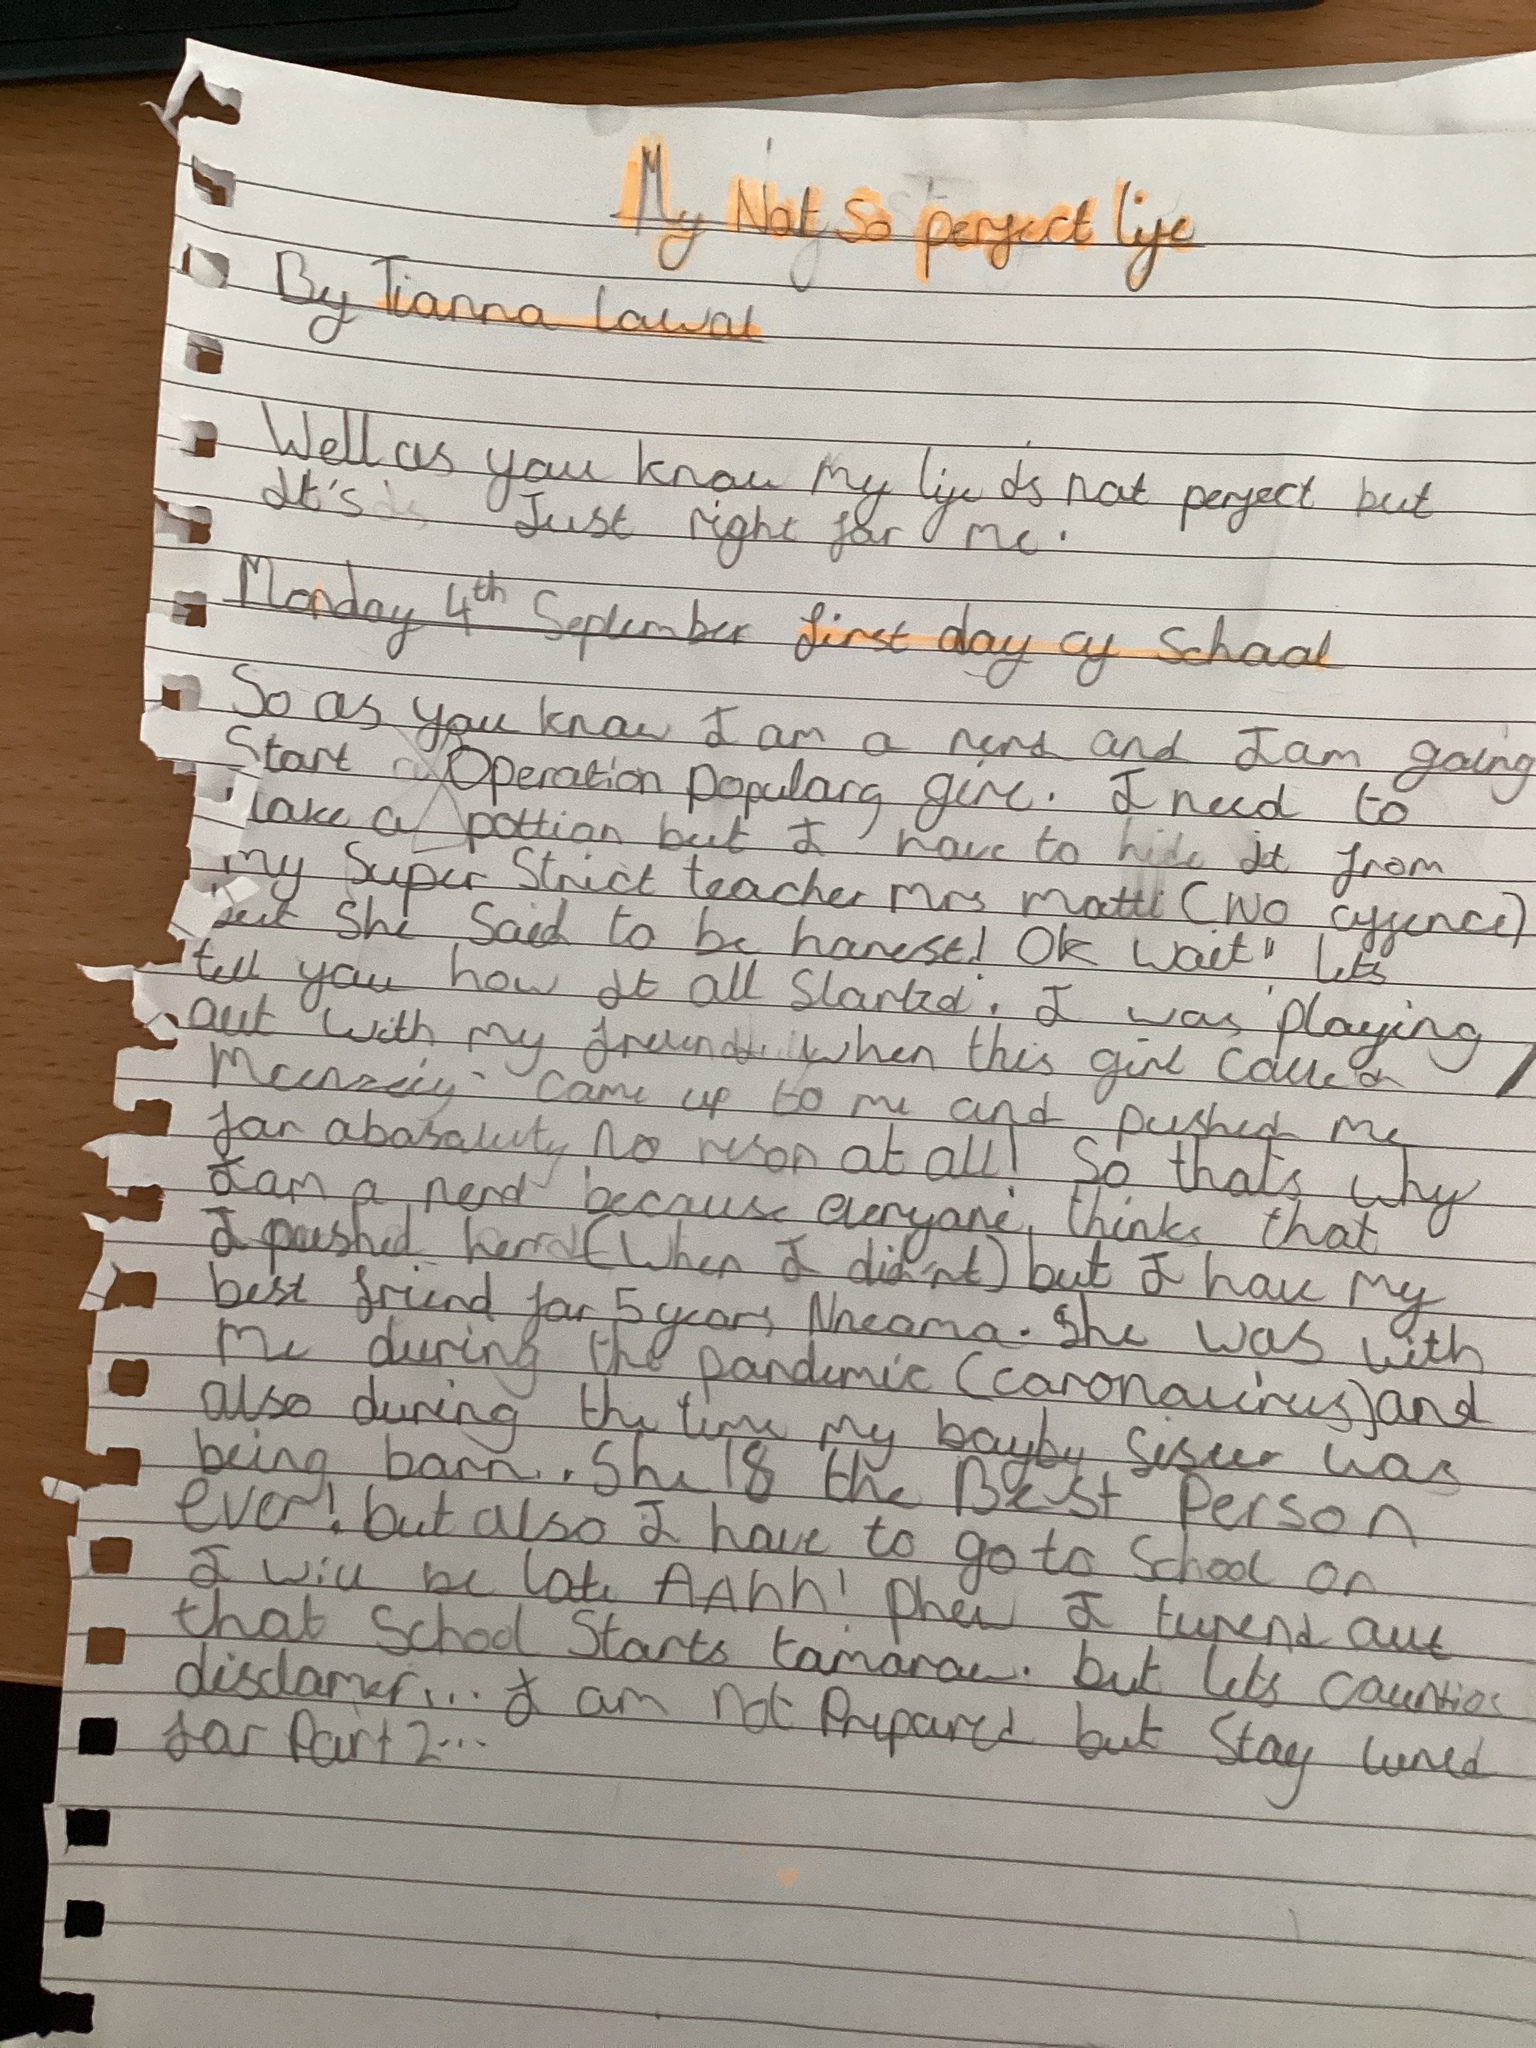 My Not So perfect life
By Tianna Lawal
Well as you know my life is not perfect but
It's Just right for me.
Monday 4th September first day of School
So as you know I am a nerd and I am going
Start Operation Popularg girl. I need to
a pottion but I have to hide it from
my Super Strict teacher Mrs Matti (NO offence)
but She Said to be honest! Ok wait" lets
tell you how it all Started. I was playing
out with my when this girl called
came up to me and pushed me
for abasaluty no reson at all! So thats why
I am a nerd because everyone thinks that
I pushed her (When I didn't) but I have my
best friend for 5 years Nneama. She was with
me during the pandemic (coronavirus) and
also during the time my bayby sister was
being born. She IS the BEST Person
ever! but also I have to go to School or
I will be late AAhh! phew I turend out
that School Starts tomorow. but lets
disclamer... I am not Prepared but Stay tuned
for Part 2...